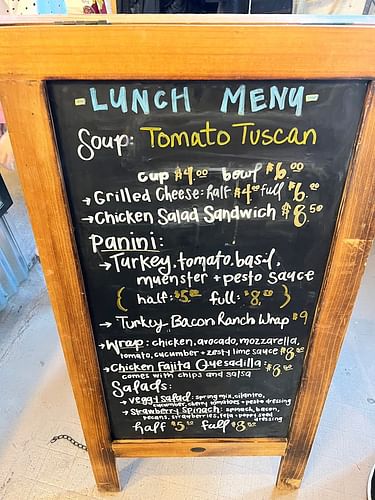 -LUNCH MENU-
Soup: Tomato Tuscan
cup $4.00 bowl $6.00
→Grilled Cheese: half $4.00 full $6.00
→Chicken Salad Sandwich $8.50
Panini:
→Turkey, tomato, basil,
muenster + pesto sauce
(half: $5.00 full: $8.00)
→Turkey Bacon Ranch Wrap $9
→Wrap: chicken, avocado, mozzarella,
tomato, cucumber + zesty lime sauce $8.00
→Chicken Fajita Quesadilla: $8.00
comes with chips and salsa
Salads:
→Veggy Salad: spring mix, cilantro,
cucumber, cherry tomatoes + pesto dressing
→Strawberry Spinach: spinach, bacon,
pecans, strawberries, feta + poppy seed
dressing
half $5.50 full $8.50